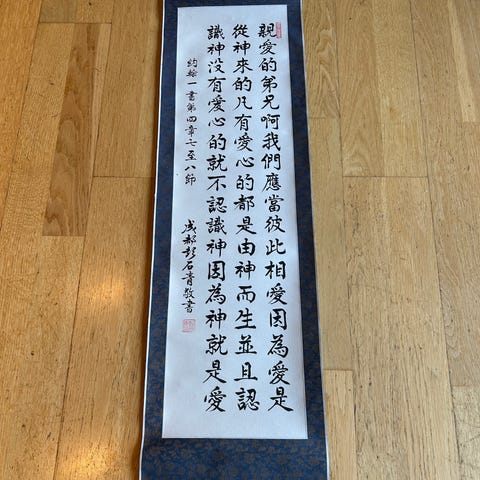 親愛的弟兄啊我們應當彼此相愛因為愛是
從神來的凡有愛心的都是由神而生並且認
識神没有愛心的就不認識神因為神就是愛
約翰一書第四章七至八節
成都彭石青敬書